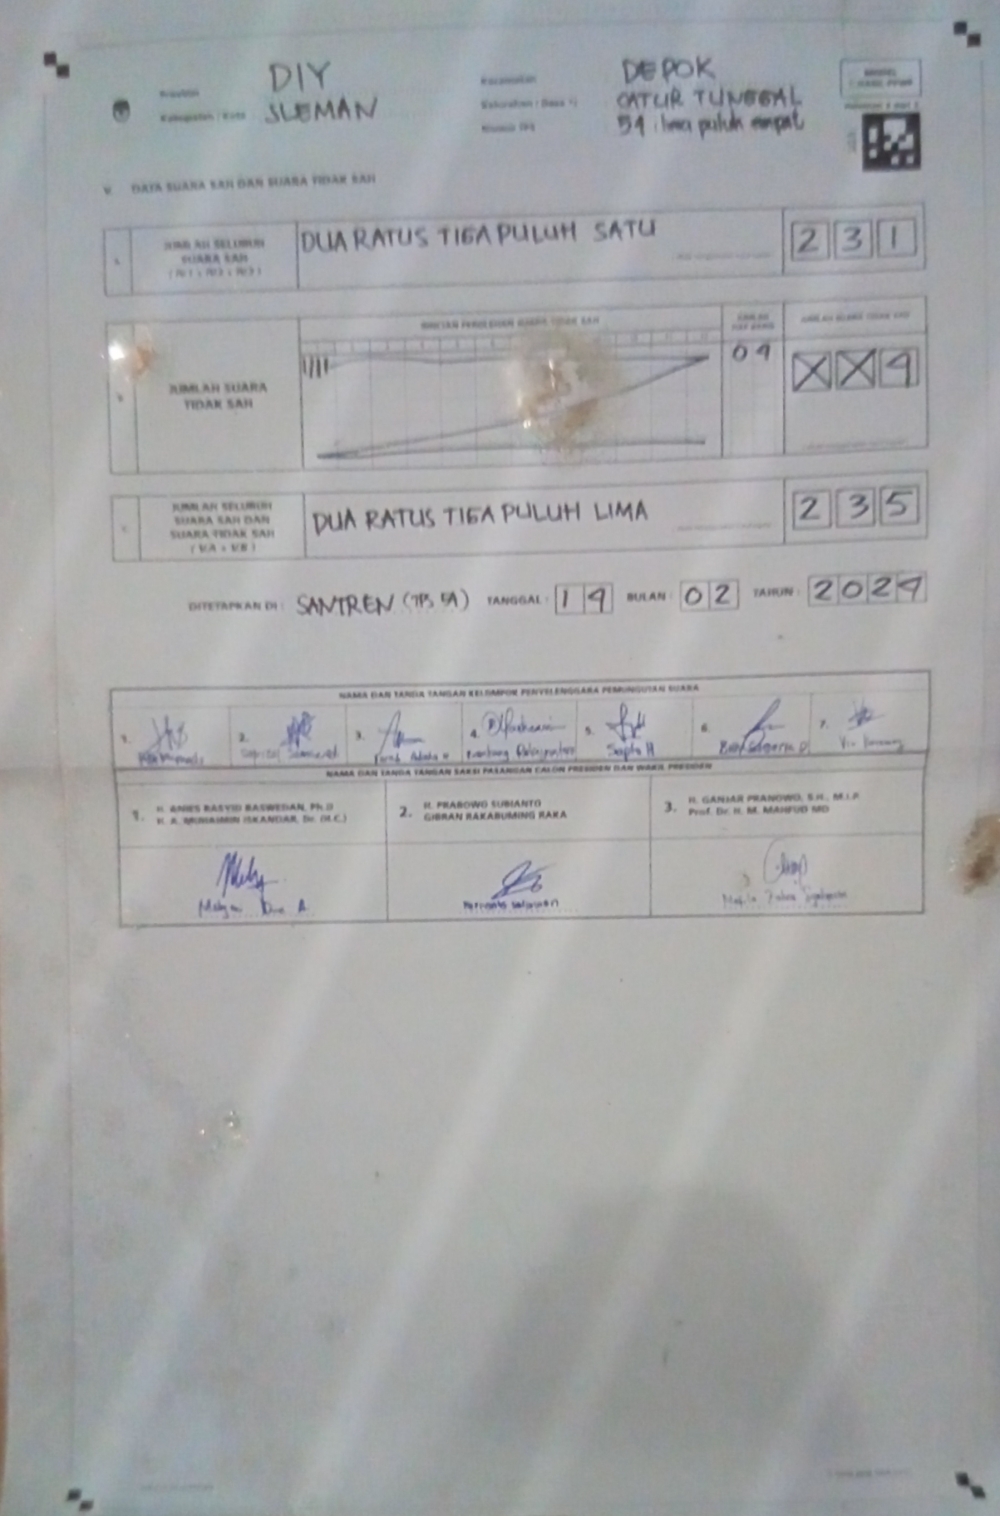 Provinsi DIY
Kabupaten / Kota SLEMAN
Kecamatan DEPOK
Kelurahan / Desa *) CATUR TUNGGAL
Nomor TPS 54 : lima puluh empat
V. DATA SUARA SAH DAN SUARA TIDAK SAH
A. JUMLAH SELURUH SUARA SAH
DUA RATUS TIGA PULUH SATU 2 3 1
B. JUMLAH SUARA TIDAK SAH
RINCIAN PEROLEHAN SUARA TIDAK SAH
JUMLAH SUARA TIDAK SAH
04 X X 4
C. JUMLAH SELURUH SUARA SAH DAN SUARA TIDAK SAH (V.A + V.B)
DUA RATUS TIGA PULUH LIMA 2 3 5
DITETAPKAN DI : SANTREN (TPS 54) TANGGAL : 1 4 BULAN : 0 2 TAHUN : 2 0 2 4
NAMA DAN TANDA TANGAN KELOMPOK PENYELENGGARA PEMUNGUTAN SUARA
1. 2. 3. 4. 5. Sapto H 6. 7.
NAMA DAN TANDA TANGAN SAKSI PASANGAN CALON PRESIDEN DAN WAKIL PRESIDEN
1. H. ANIES RASYID BASWEDAN, Ph.D
H. A. MUHAIMIN ISKANDAR, Dr. (H.C.)
2. H. PRABOWO SUBIANTO
GIBRAN RAKABUMING RAKA
3. H. GANJAR PRANOWO, S.H., M.I.P.
Prof. Dr. H. M. MAHFUD MD